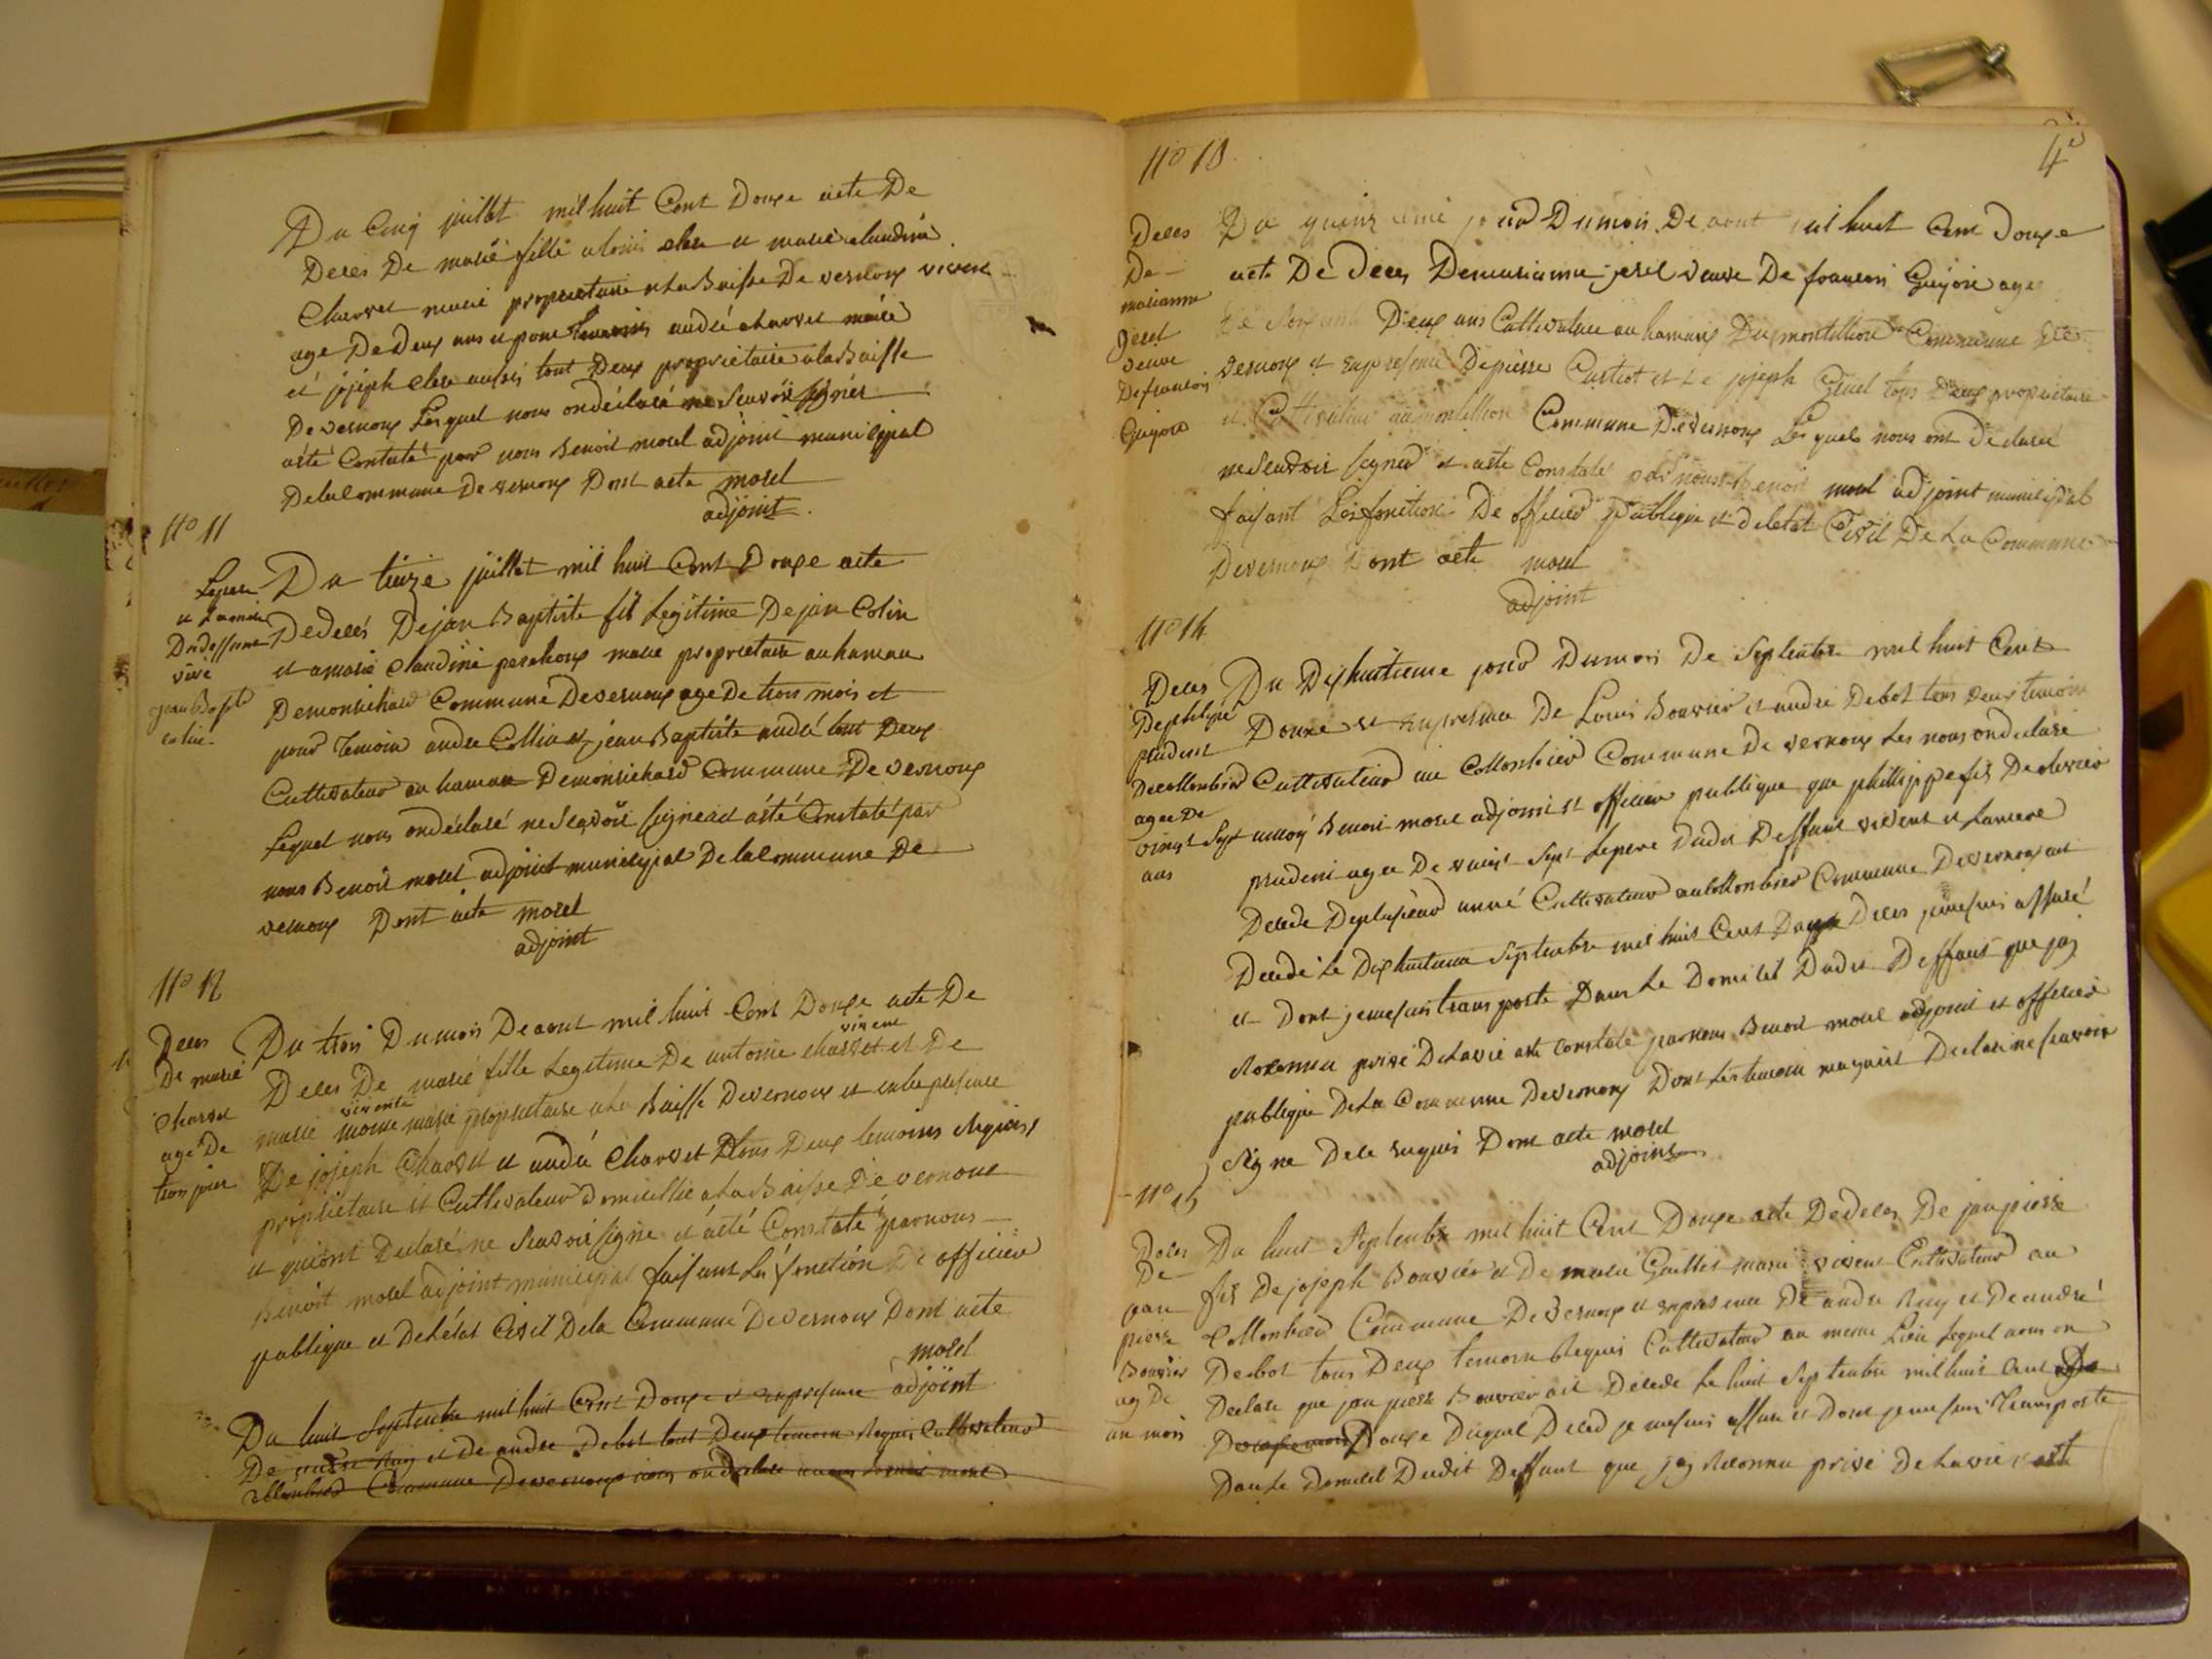 Du Cinq juillet mil huit Cent Douze acte De
Deces De marie fille a louis clere et marie claudine
Charvet marié proprietaire a La Baisse De vernoux vivent
age De Deux ans et pour temoins andré charvet marié
et joseph clere aussi tout Deux proprietaire a la Baisse
De vernoux Lesquel nous on déclaré ne Scavoir signér
a été Contaté par nous Benoit morel adjoint municipal
De la Commune De vernoux Dont acte morel
adjoint
N° 11
Lepere
et Lamere
Dudeffunt
vive
jean Bapte
colin
Du treize juillet mil huit Cent Douze acte
De decés De jan Baptiste fils Legitime De jan Colin
et a marie Claudine perachoux marié proprietaire au hamau
De monrichard Commune De vernoux age De trois mois et
pour temoin andre Collin et jean Baptiste andré tout Deux
Cultivateur au hamau De monrichard Commune De vernoux
Lequel nous on déclaré ne Scavoir signe et a été Constaté par
nous Benoit morel adjoint municipal De la Commune De
vernoux Dont acte morel
adjoint
N° 12
Deces
De marie
Charvet
age De
trois jour
Du trois Du mois De aout mil huit Cent Douze acte De
vivent
Deces De marie fille Legitime De antoine charvet et De
vivente
marie moine marié proprietaire a La Baisse De vernoux et en les presence
De joseph Charvet et andré Charvet tous Deux temoins Requist
proprietaire et Cultivateur Domicillié a La Baisse De vernoux
et qui ont Declaré ne Scavoir signe et a été Constaté par nous
Benoit morel adjoint municipal faisant Les fonction De officier
publique et De Létat Civil De la Commune De vernoux Dont acte
morel
adjoint
Du huit Septembre mil huit Cent Douze et en presence
De andre Ruy et De andre Debot tout Deux temoin Requis Cultivateur
Collonbier Commune De vernoux nous on declare a nous Benoit morel
N° 13
4e
Deces
De
marianne
jesel
veuve
De francois
Guyon
Du quinzieme jour Du mois De aout mil huit Cent Douze
acte De Deces De marianne jesel veuve De francois Guyon age
De Soixante Deux ans Cultivateur au hamaux Du montillion Commune De
vernoux et en presence De pierre Custiot et De joseph Gruel tous Deux proprietaire
et Cultivateur au montillion Commune De vernoux Les quels nous ont Declaré
ne Scavoir signer et a été Constaté par nous Benoit morel adjoint municipal
faisant Les fonction De officier publique et De letat Civil De La Commune
De vernoux Dont acte morel
adjoint
N° 14
Deces
De philipe
prudent
De collonbier
agee De
vingt Sept
ans
Du Dix huitieme jour Du mois De Septembre mil huit Cent
Douze et en presence De Louis Bouvier et andre Debot tous deux temoin
Cultivateur au Collonbier Commune De vernoux Les nous on declaré
a moy Benoit morel adjoint et officier publique que phillippe fis De olivier
prudent agee De vingt Sept Le pere Dudit Deffunt vivent et La mere
Decede De plusieur anné Cultivateur au Collonbier Commune De vernoux est
Decedé Le Dix huitieme Septembre mil huit Cent Douze Deces je me suis assuré
et Dont je me suis transporté Dans Le Domicile Dudit Deffunt que jay
Reconnu privé De La vie a été constaté par nous Benoit morel adjoint et officier
publique De La Commune De vernoux Dont Les temoin requis Declaré ne scavoir
signe De ce enquis Dont acte morel
adjoint
N° 15
Deces
De
jan
pierre
Bouvier
ag De
un mois
Du huit Septembre mil huit Cent Douze acte De deces De jan pierre
fis De joseph Bouvier et De marie Gaillet marié vivent Cultivateur au
Collonbier Commune De vernoux et en presence De andre Ruy et De andré
Debot tous Deux temoin Requis Cultivateur au meme Lieu Lequel nous on
Declare que jan pierre Bouvier est Decede Le huit Septembre mil huit Cent
Douze Duquel Deced je me suis assure et Dont je me suis Transporte
Dans Le Domicile Dudit Deffunt que jay Reconnu privé De La vie a été